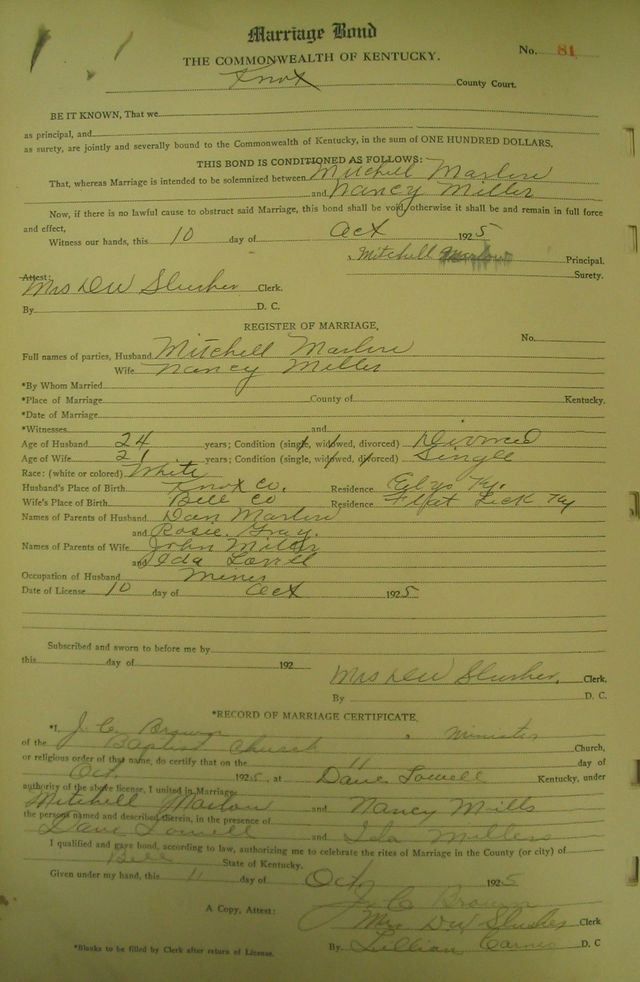 Marriage Bond
THE COMMONWEALTH OF KENTUCKY.
No. 81
Knox County Court.
BE IT KNOWN, That we
as principal, and
as surety, are jointly and severally bound to the Commonwealth of Kentucky, in the sum of ONE HUNDRED DOLLARS,
THIS BOND IS CONDITIONED AS FOLLOWS:
That, whereas Marriage is intended to be solemnized between Mitchell Marlow
and Nancy Miller
Now, if there is no lawful cause to obstruct said Marriage, this bond shall be void, otherwise it shall be and remain in full force
and effect,
Witness our hands, this 10 day of Oct 1925
Mitchell Marlow Principal.
Surety.
Attest:
Mrs DW Slusher Clerk.
By D. C.
REGISTER OF MARRIAGE,
No.
Full names of parties, Husband Mitchell Marlow
Wife Nancy Miller
*By Whom Married
*Place of Marriage County of Kentucky.
*Date of Marriage
*Witnesses and
Age of Husband 24 years; Condition (single, widowed, divorced) Divorced
Age of Wife 21 years; Condition (single, widowed, divorced) Single
Race: (white or colored) White
Husband's Place of Birth Knox Co. Residence Ky.
Wife's Place of Birth Bell Co Residence Flat Lick Ky
Names of Parents of Husband Dan Marlow
and Rosie Gray.
Names of Parents of Wife John Miller
and Ida
Occupation of Husband Miner
Date of License 10 day of Oct 1925
Subscribed and sworn to before me by
this day of 192
Mrs DW Slusher, Clerk,
By D. C.
*RECORD OF MARRIAGE CERTIFICATE,
*I, J. C. Brown, Minister
of the Baptist Church Church,
or religious order of that name, do certify that on the 11 day of
Oct. 1925, at Dave Lowell Kentucky, under
authority of the above license, I united in Marriage
Mitchell Marlow and Nancy Mills
the persons named and described therein, in the presence of
Dave Lowell and Ida Millers
I qualified and gave bond, according to law, authorizing me to celebrate the rites of Marriage in the County (or city) of
Bell State of Kentucky.
Given under my hand, this 11 day of Oct 1925
J. C. Brown
A Copy, Attest: Mrs DW Slusher Clerk
By Lillian Carnes D. C
*Blanks to be filled by Clerk after return of License.